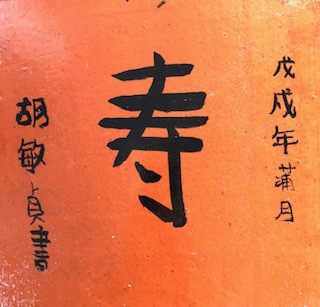 戊戌年蒲月
寿
胡敏貞書